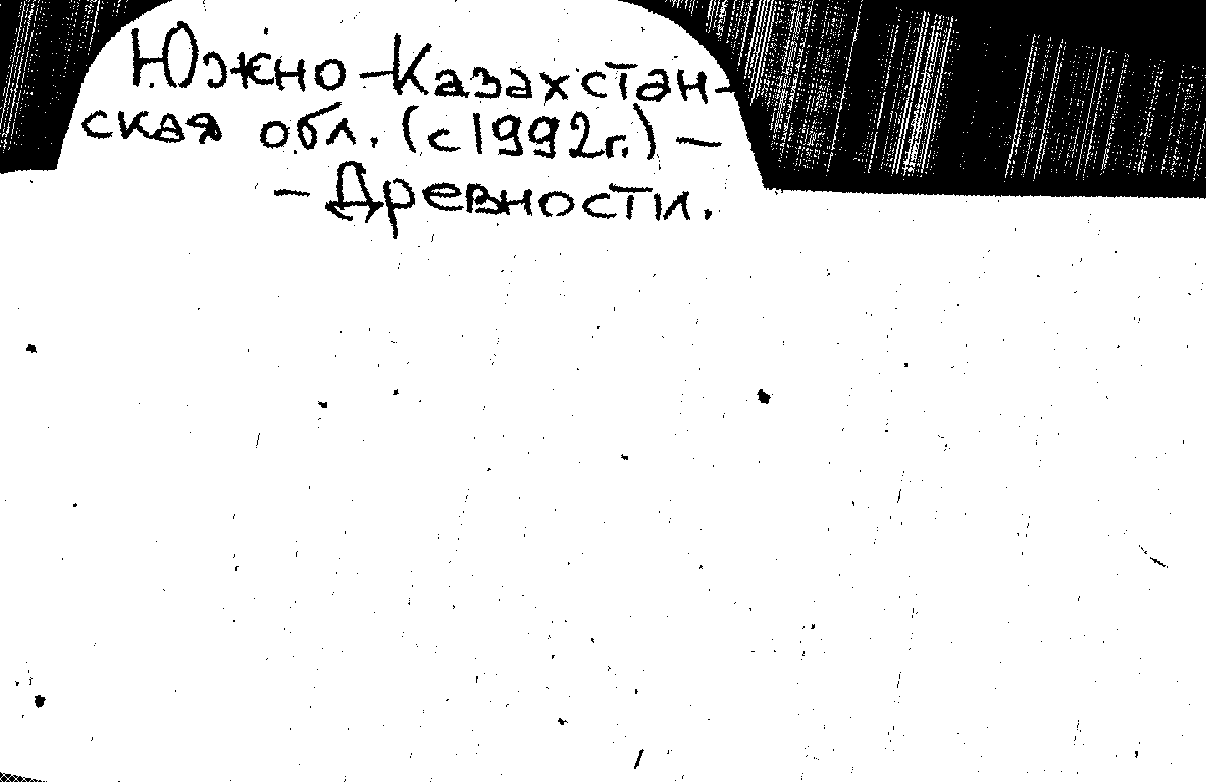 Южно-Казахстан-
ская обл. (с 1992г.) —
— Древности.